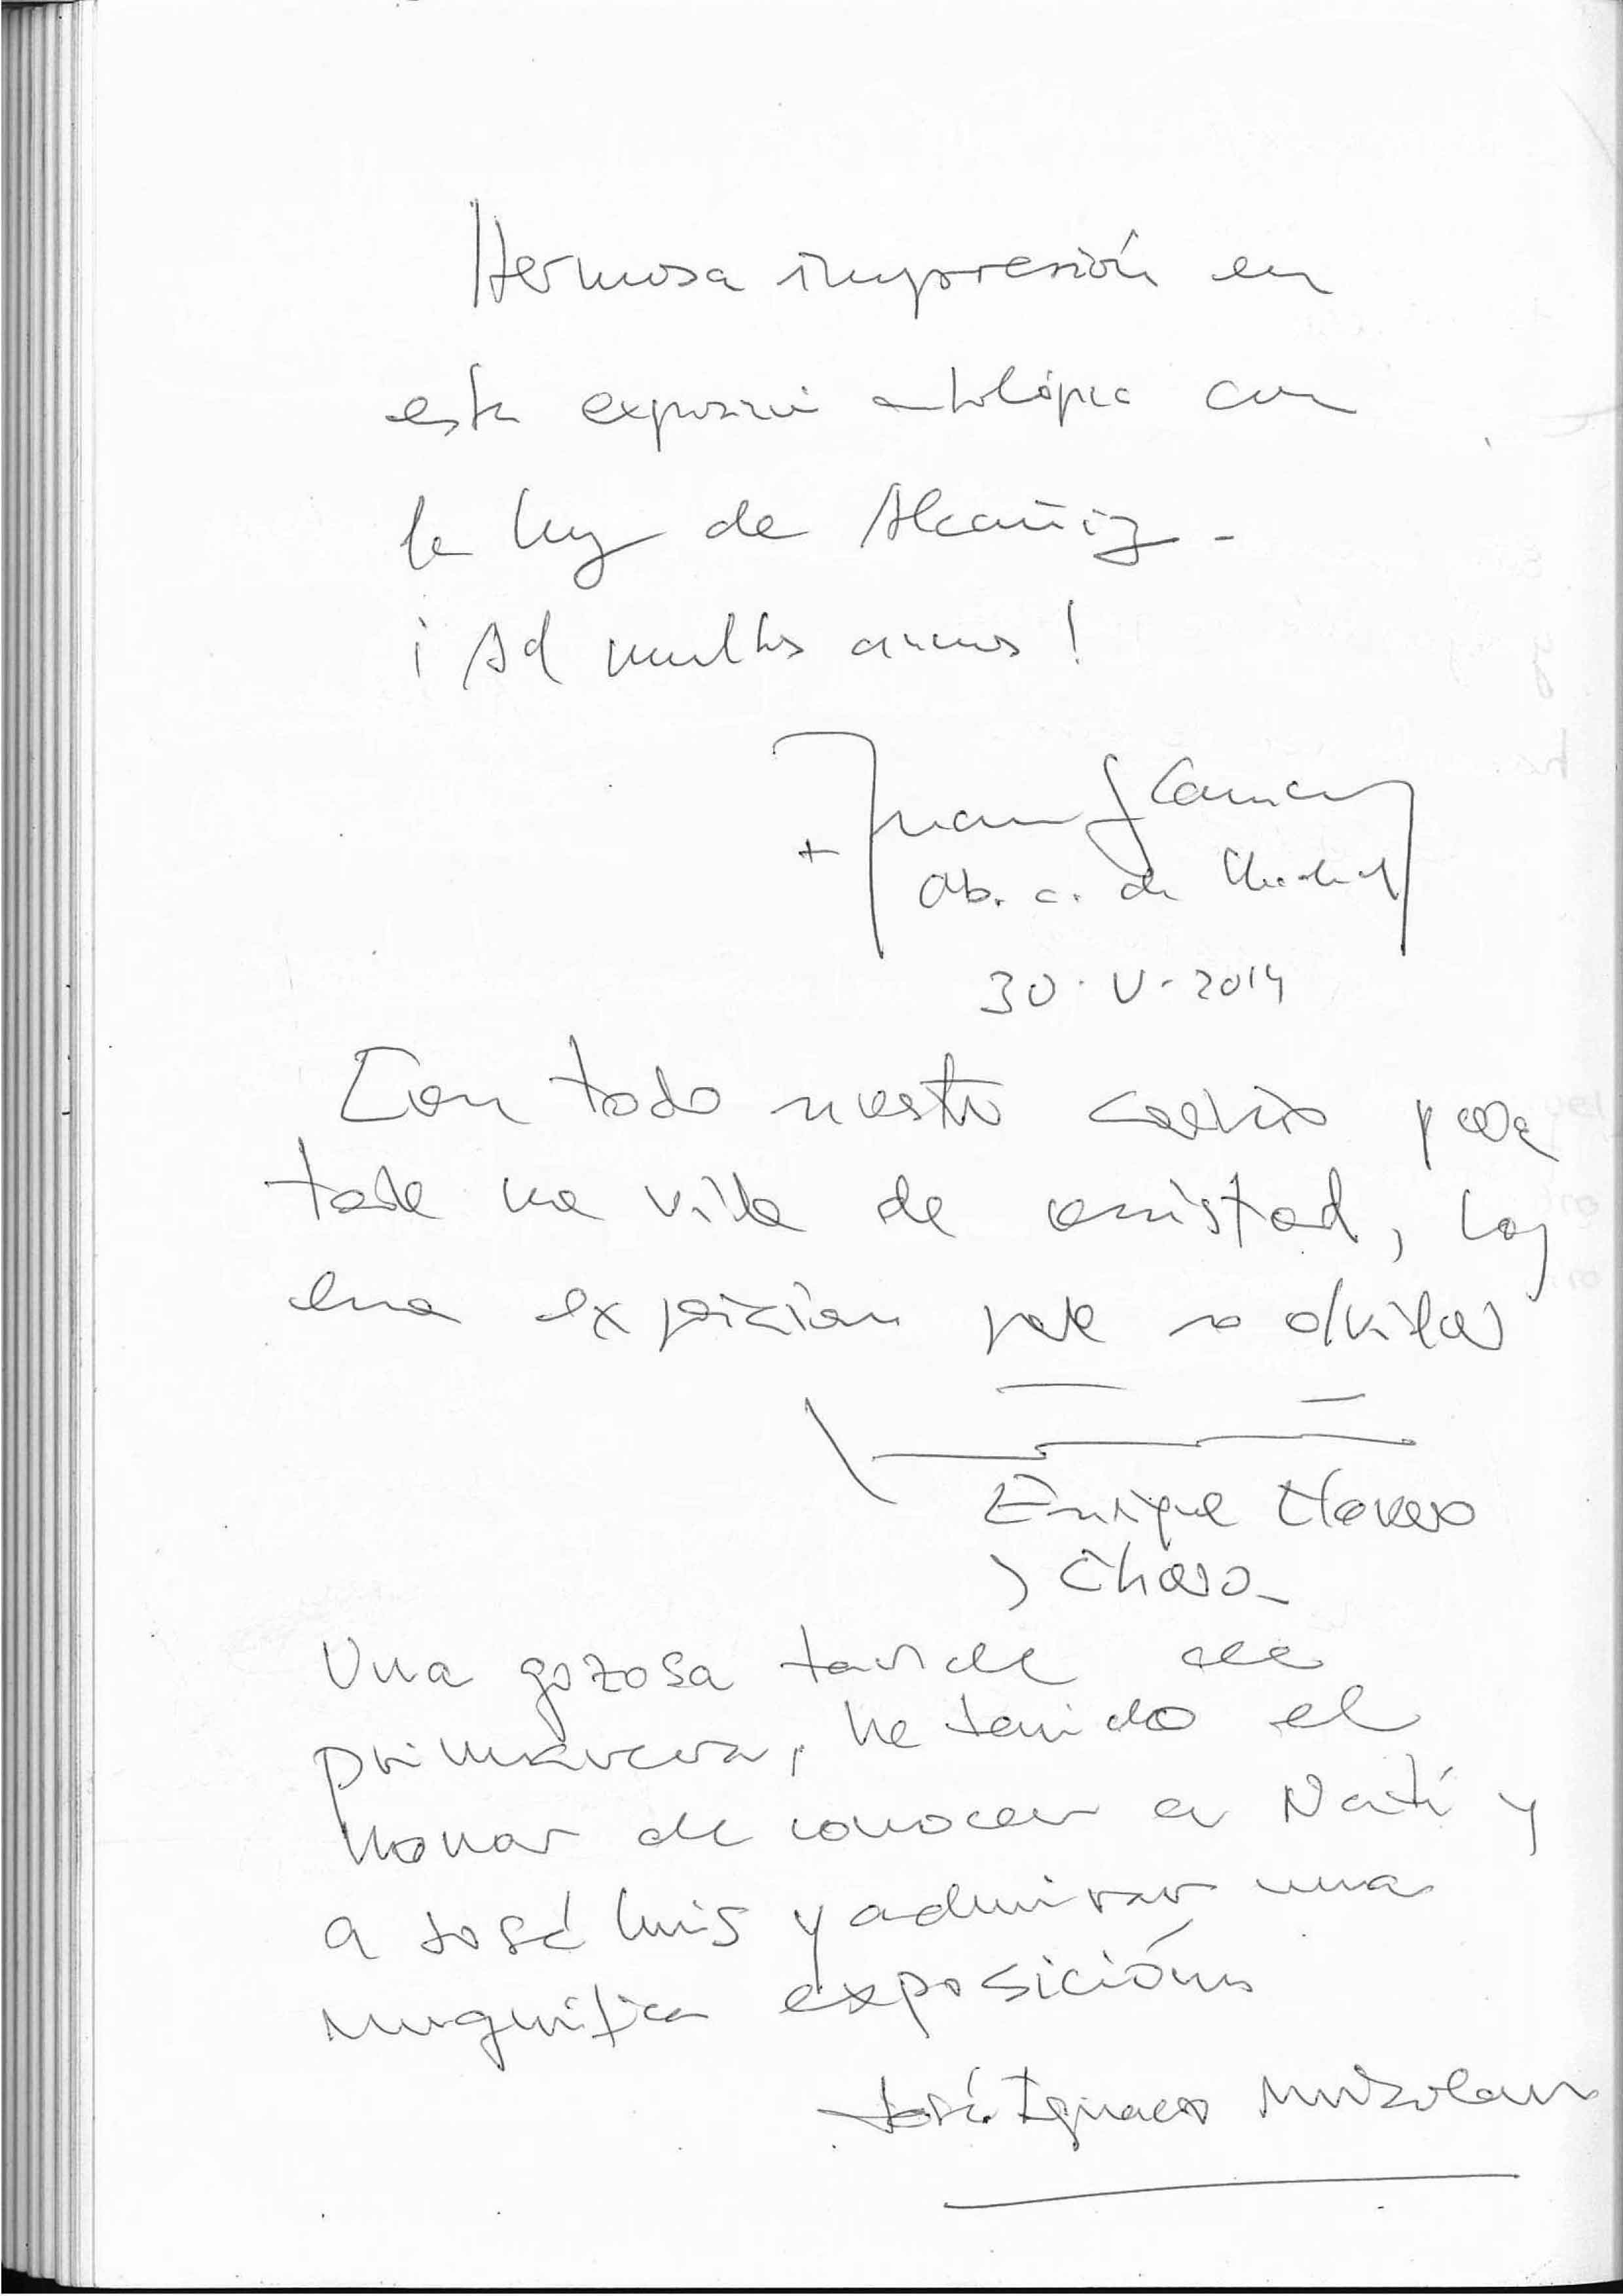 Hermosa impresión en
esta exposición antológica con
la luz de Alcañiz.
¡Ad multos annos!
+ Juan A Camino
Ob. a. de Madrid
30·V·2014
Con todo nuestro cariño para
toda una vida de amistad, hoy
una exposición para no olvidar
Enrique
y Charo
Una gozosa tarde de
primavera, he tenido el
honor de conocer a Nati y
a José Luis y admirar una
magnífica exposición
José Ignacio